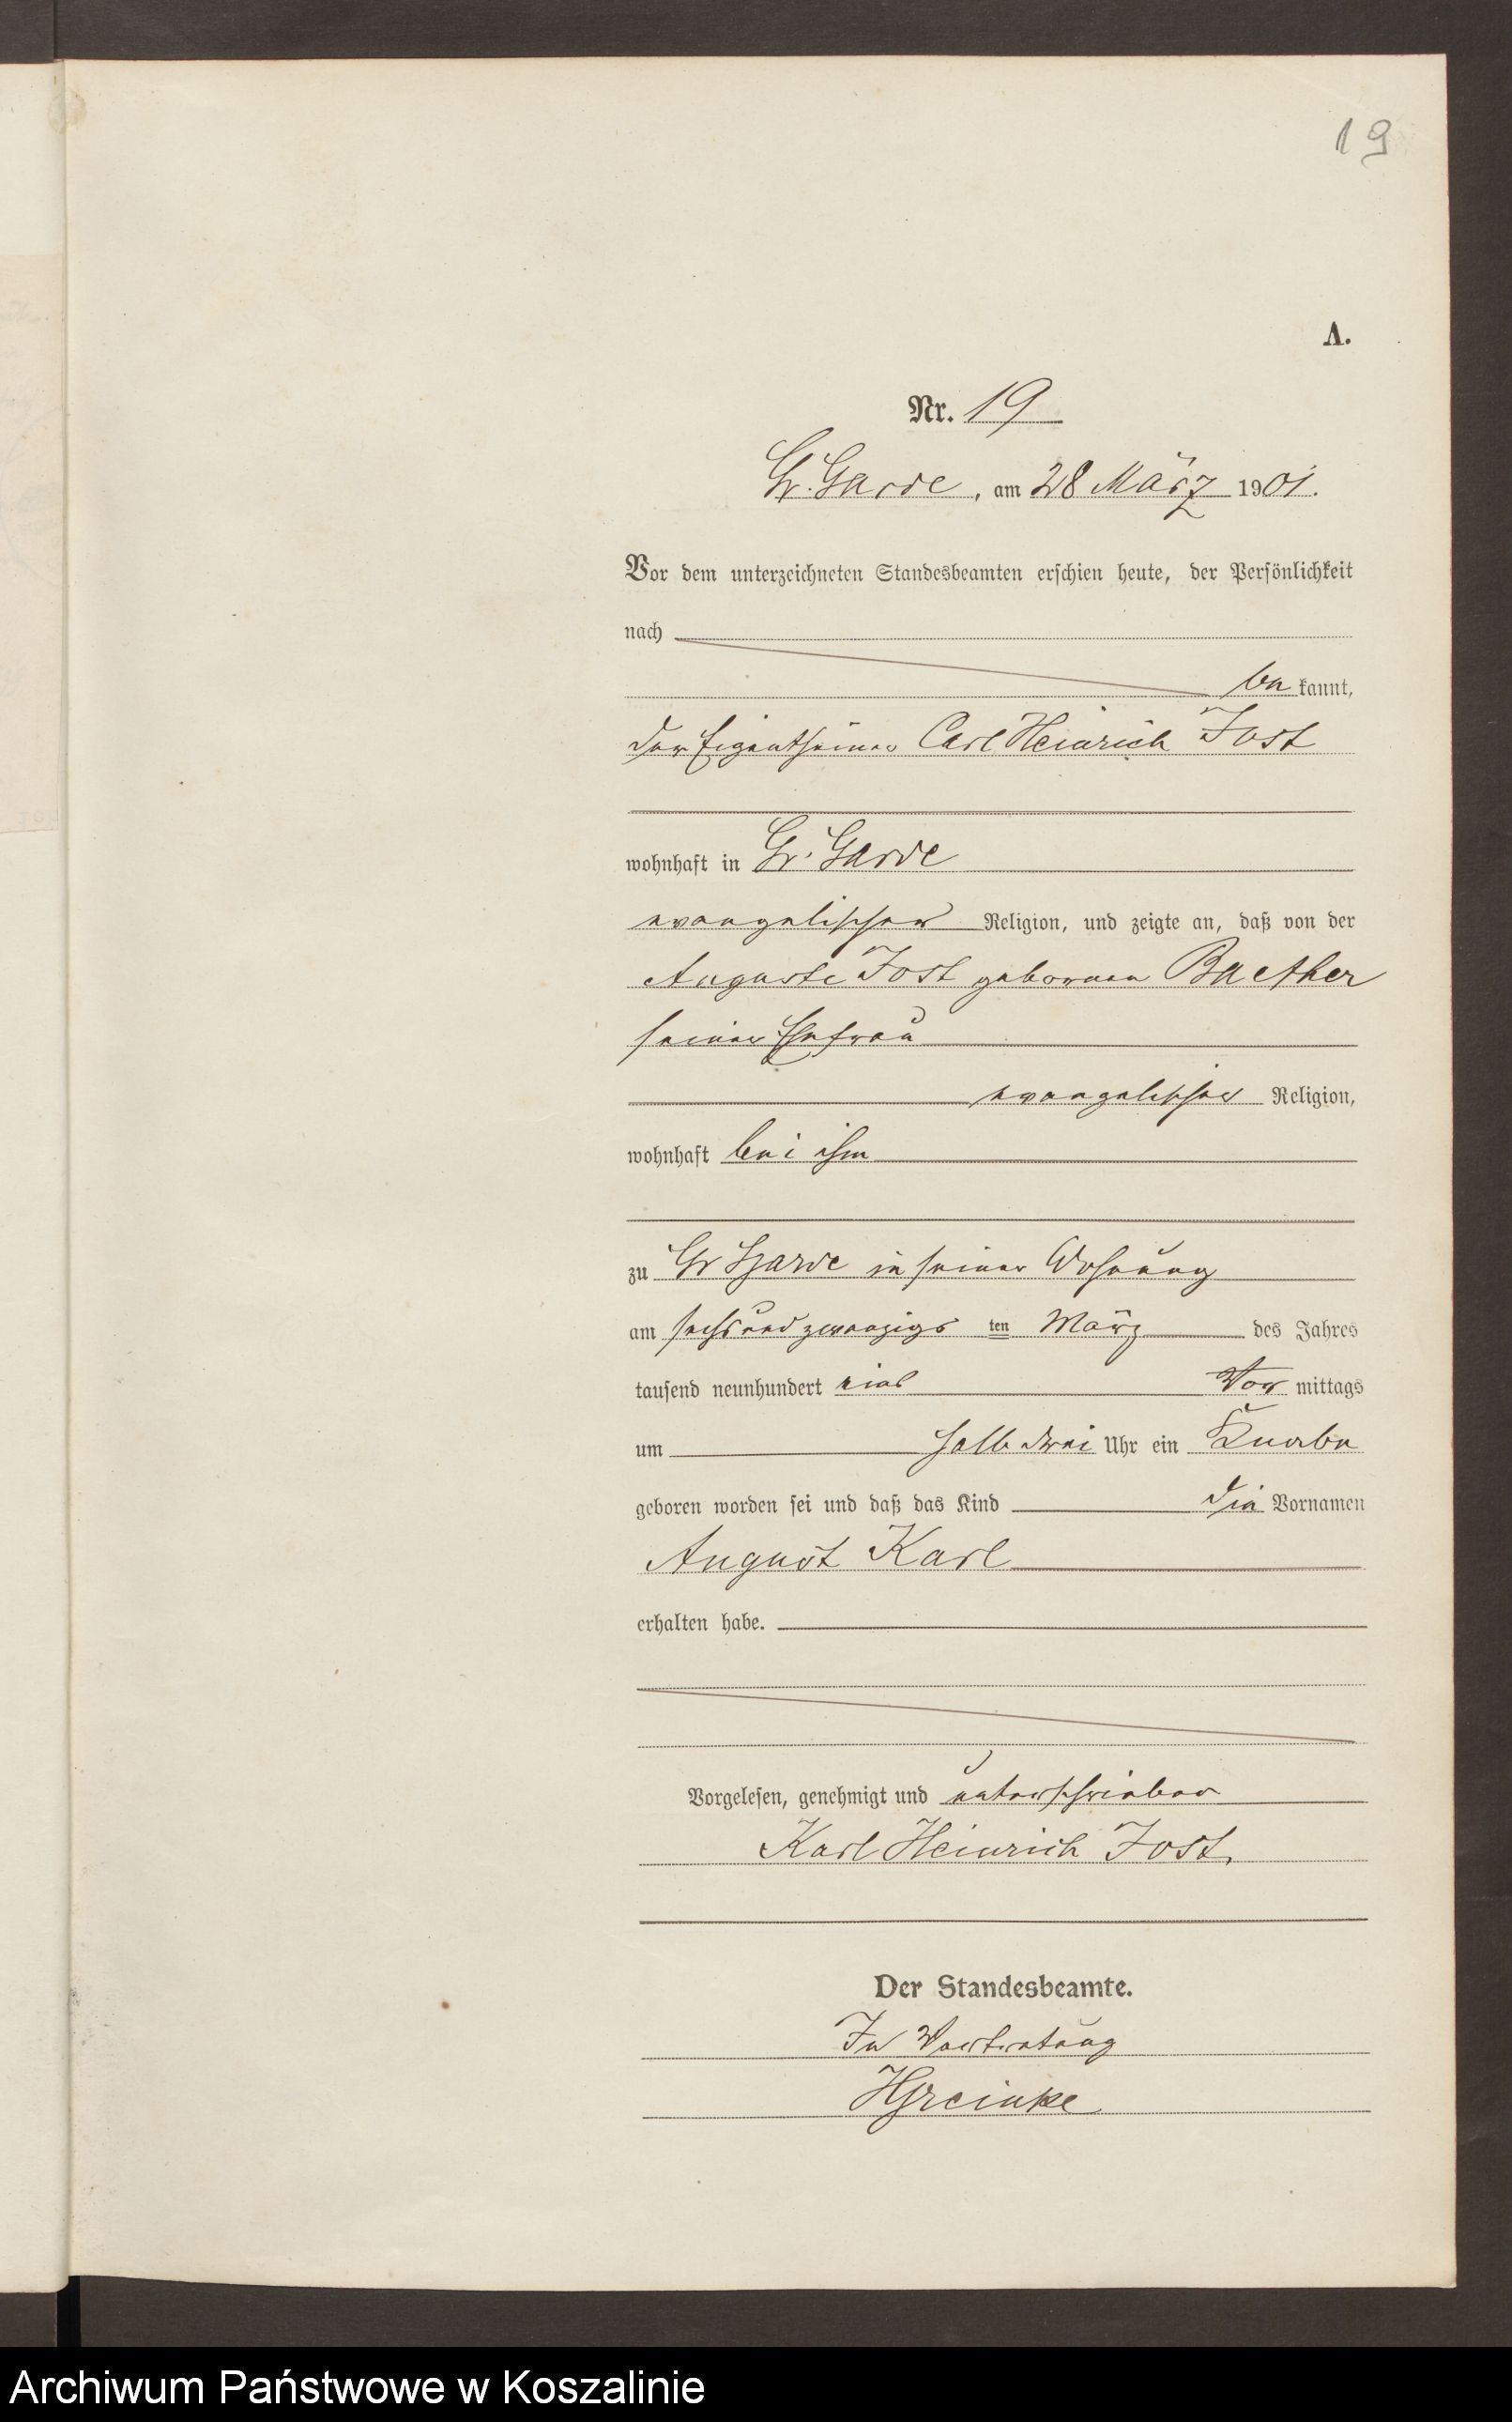 19
A.
Nr. 19
Gr. Garde, am 28 März 1901.
Vor dem unterzeichneten Standesbeamten erschien heute, der Persönlichkeit
nach
be kannt,
der Eigenthümer Carl Heinrich Jost
wohnhaft in Gr. Garde
evangelischer Religion, und zeigte an, daß von der
Auguste Jost geborenen Baether
seiner Ehefrau
evangelischer Religion,
wohnhaft bei ihm
zu Gr Garde in seiner Wohnung
am sechsundzwanzigs ten März des Jahres
tausend neunhundert eins Vor mittags
um halb drei Uhr ein Knabe
geboren worden sei und daß das Kind die Vornamen
August Karl
erhalten habe.
Vorgelesen, genehmigt und unterschrieben
Karl Heinrich Jost.
Der Standesbeamte.
In Vertretung
Archiwum Państwowe w Koszalinie